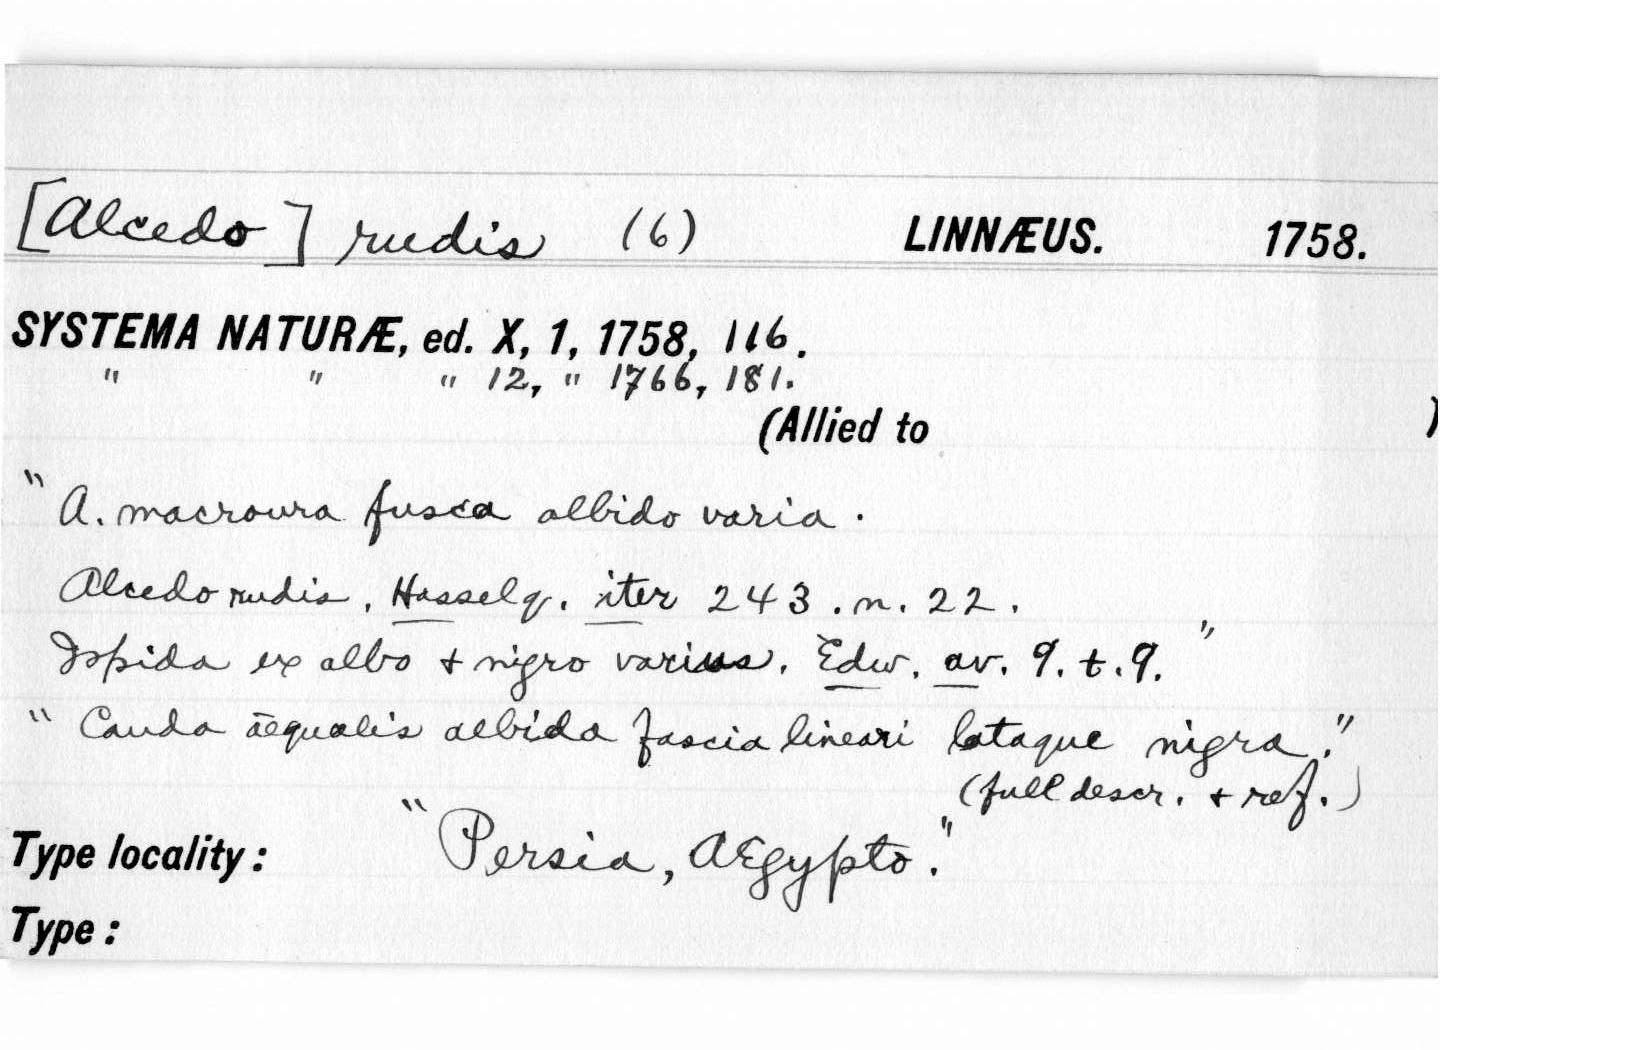 [Alcedo] rudis (6) LINNÆUS. 1758.
SYSTEMA NATURÆ, ed. X, 1, 1758, 116.
" " " 12, " 1766, 181.
(Allied to )
"A. macroura fusca albido varia.
Alcedo rudis, Hasselq. iter 243. n. 22.
Ispida ex albo & nigro varius. Edw. av. 9. t. 9."
"Cauda æqualis albida fascia lineari lataque nigra."
(full descr. & ref.)
Type locality: "Persia, Ægypto."
Type: